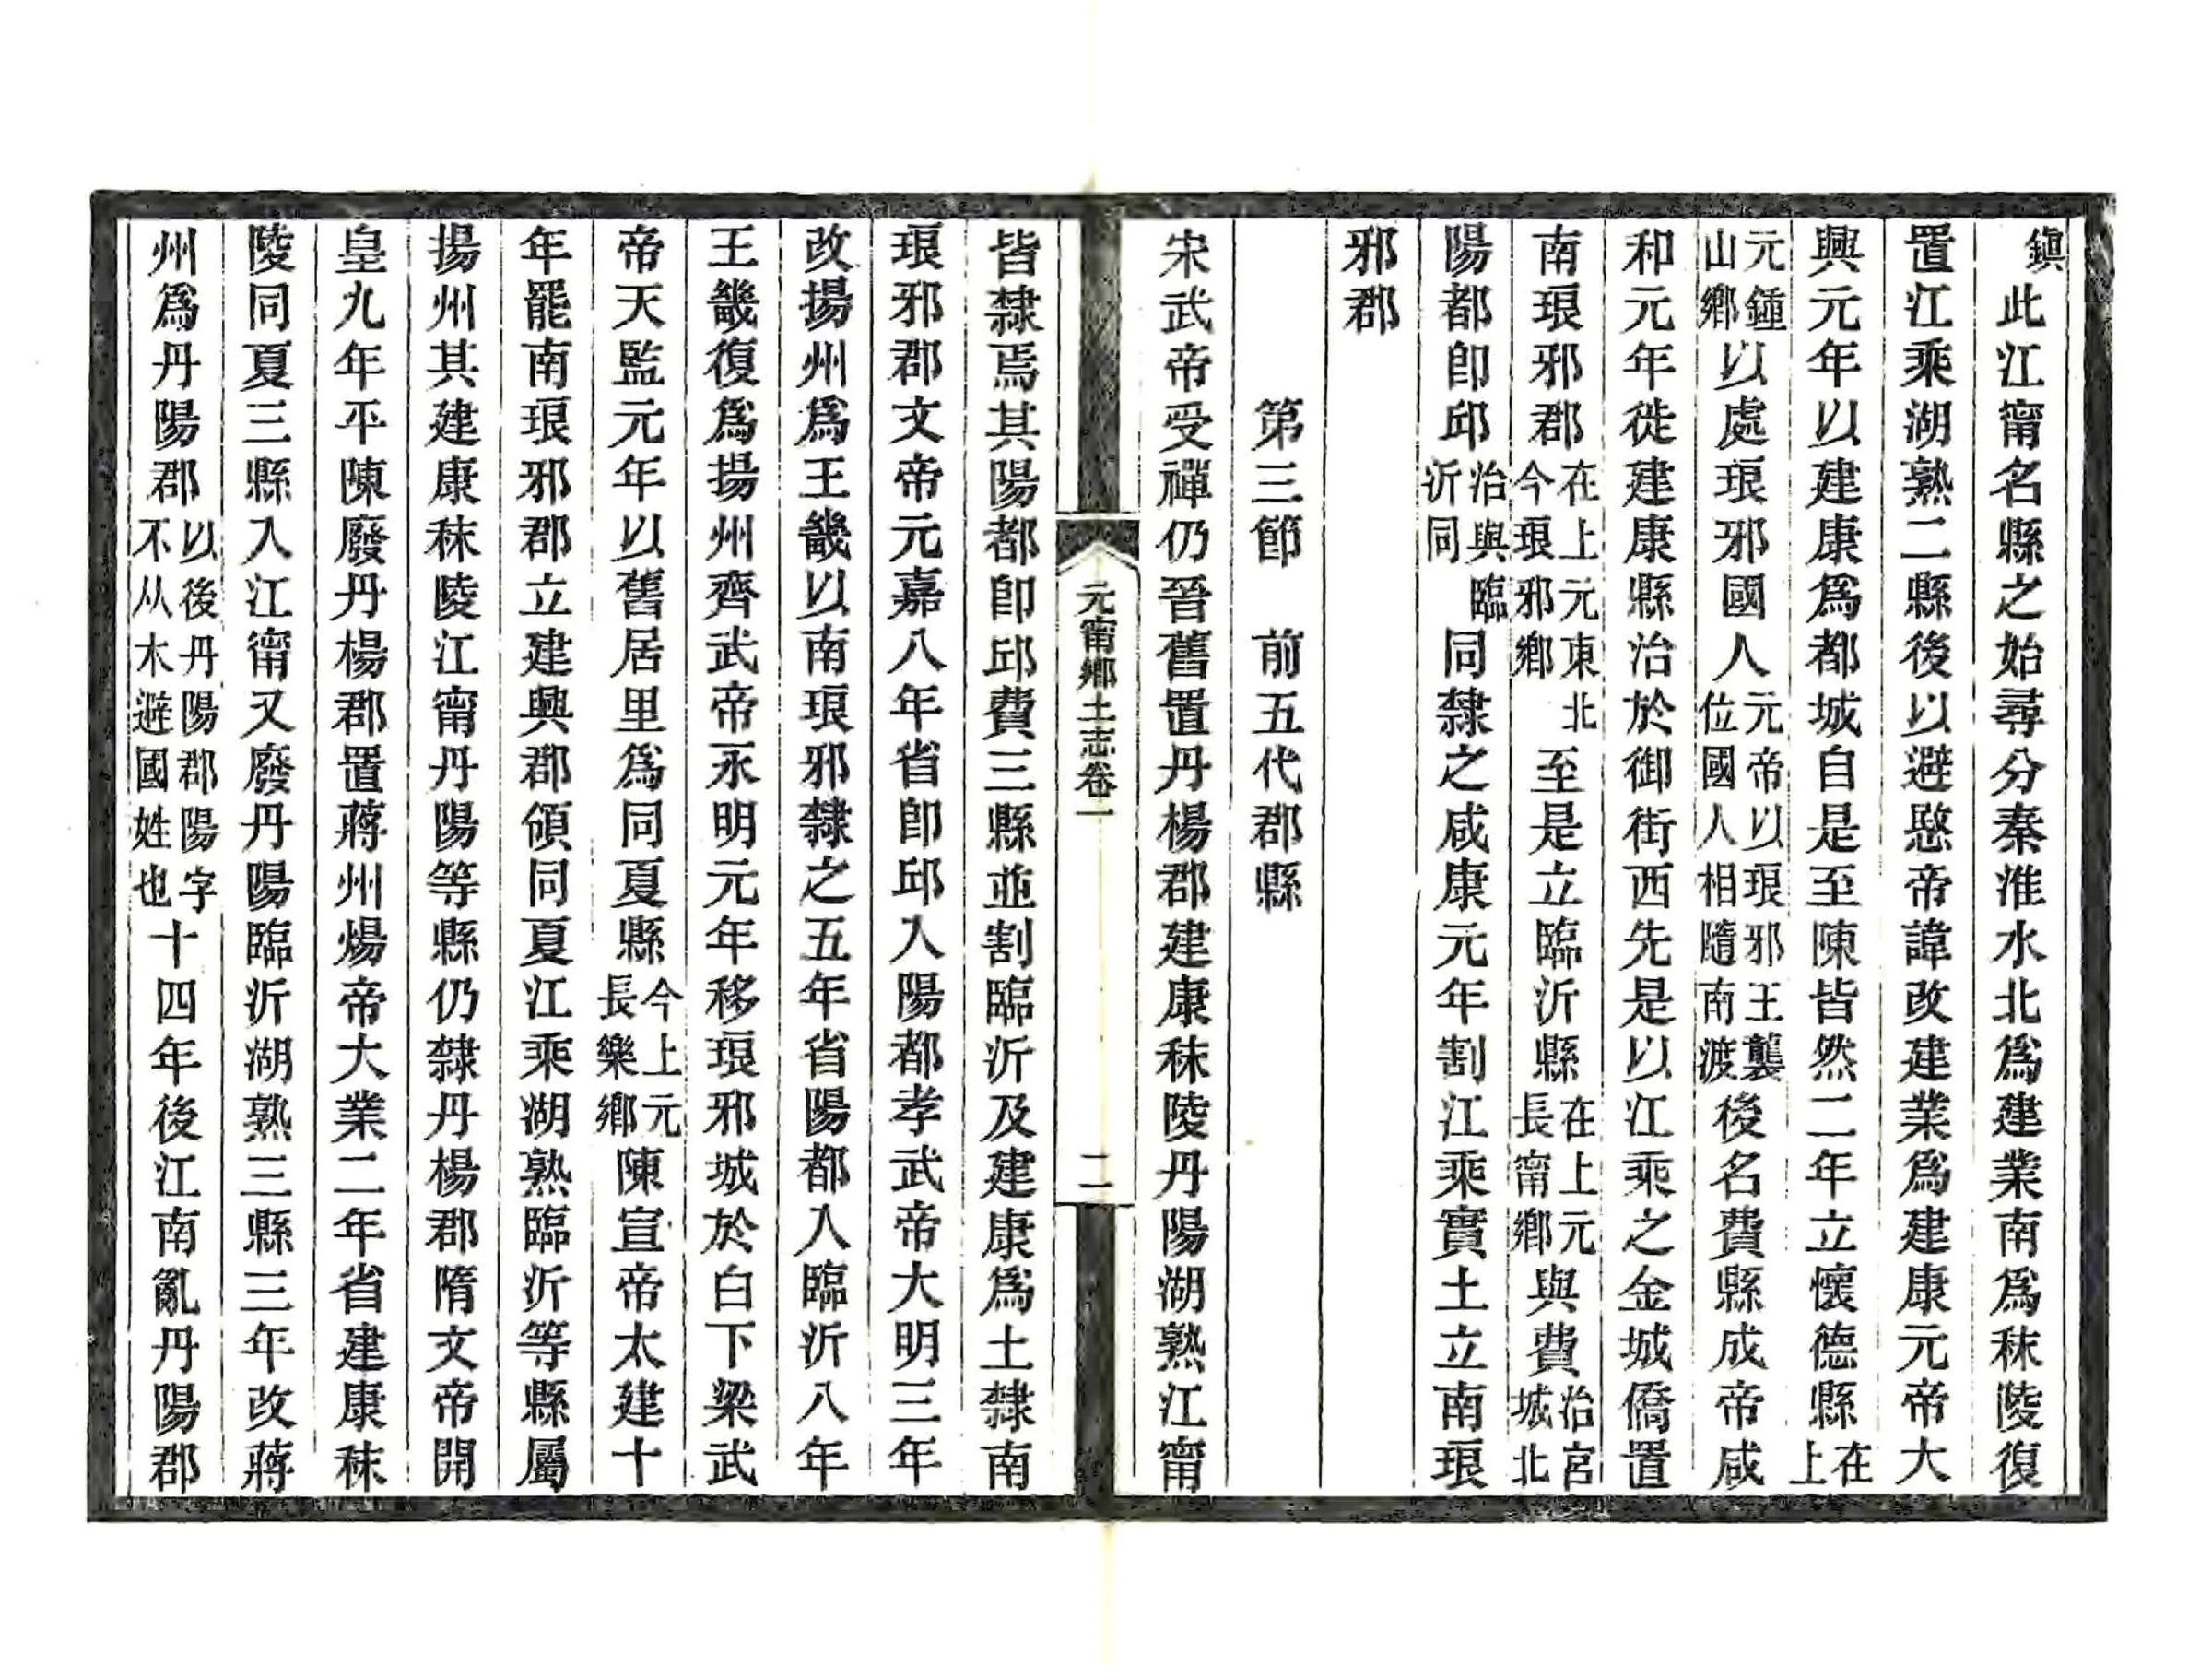 鎭此江甯名縣之始尋分秦淮水北爲建業南爲秣陵復
置江乘湖熟二縣後以避愍帝諱改建業爲建康元帝大
興元年以建康爲都城自是至陳皆然二年立懷德縣在上
元鍾山鄉以處琅邪國人元帝以琅邪王襲位國人相隨南渡後名費縣成帝咸
和元年徙建康縣治於御街西先是以江乘之金城僑置
南琅邪郡在上元東北今琅邪鄉至是立臨沂縣在上元長甯鄉與費治宮城北
陽都卽邱治與臨沂同同隸之咸康元年割江乘實土立南琅
邪郡
第三節　前五代郡縣
宋武帝受禪仍晉舊置丹楊郡建康秣陵丹陽湖熟江甯
元甯鄉土志卷一　二
皆隸焉其陽都卽邱費三縣並割臨沂及建康爲土隸南
琅邪郡文帝元嘉八年省卽邱入陽都孝武帝大明三年
改揚州爲王畿以南琅邪隸之五年省陽都入臨沂八年
王畿復爲揚州齊武帝永明元年移琅邪城於白下梁武
帝天監元年以舊居里爲同夏縣今上元長樂鄉陳宣帝太建十
年罷南琅邪郡立建興郡領同夏江乘湖熟臨沂等縣屬
揚州其建康秣陵江甯丹陽等縣仍隸丹楊郡隋文帝開
皇九年平陳廢丹楊郡置蔣州煬帝大業二年省建康秣
陵同夏三縣入江甯又廢丹陽臨沂湖熟三縣三年改蔣
州爲丹陽郡以後丹陽郡陽字不从木避國姓也十四年後江南亂丹陽郡